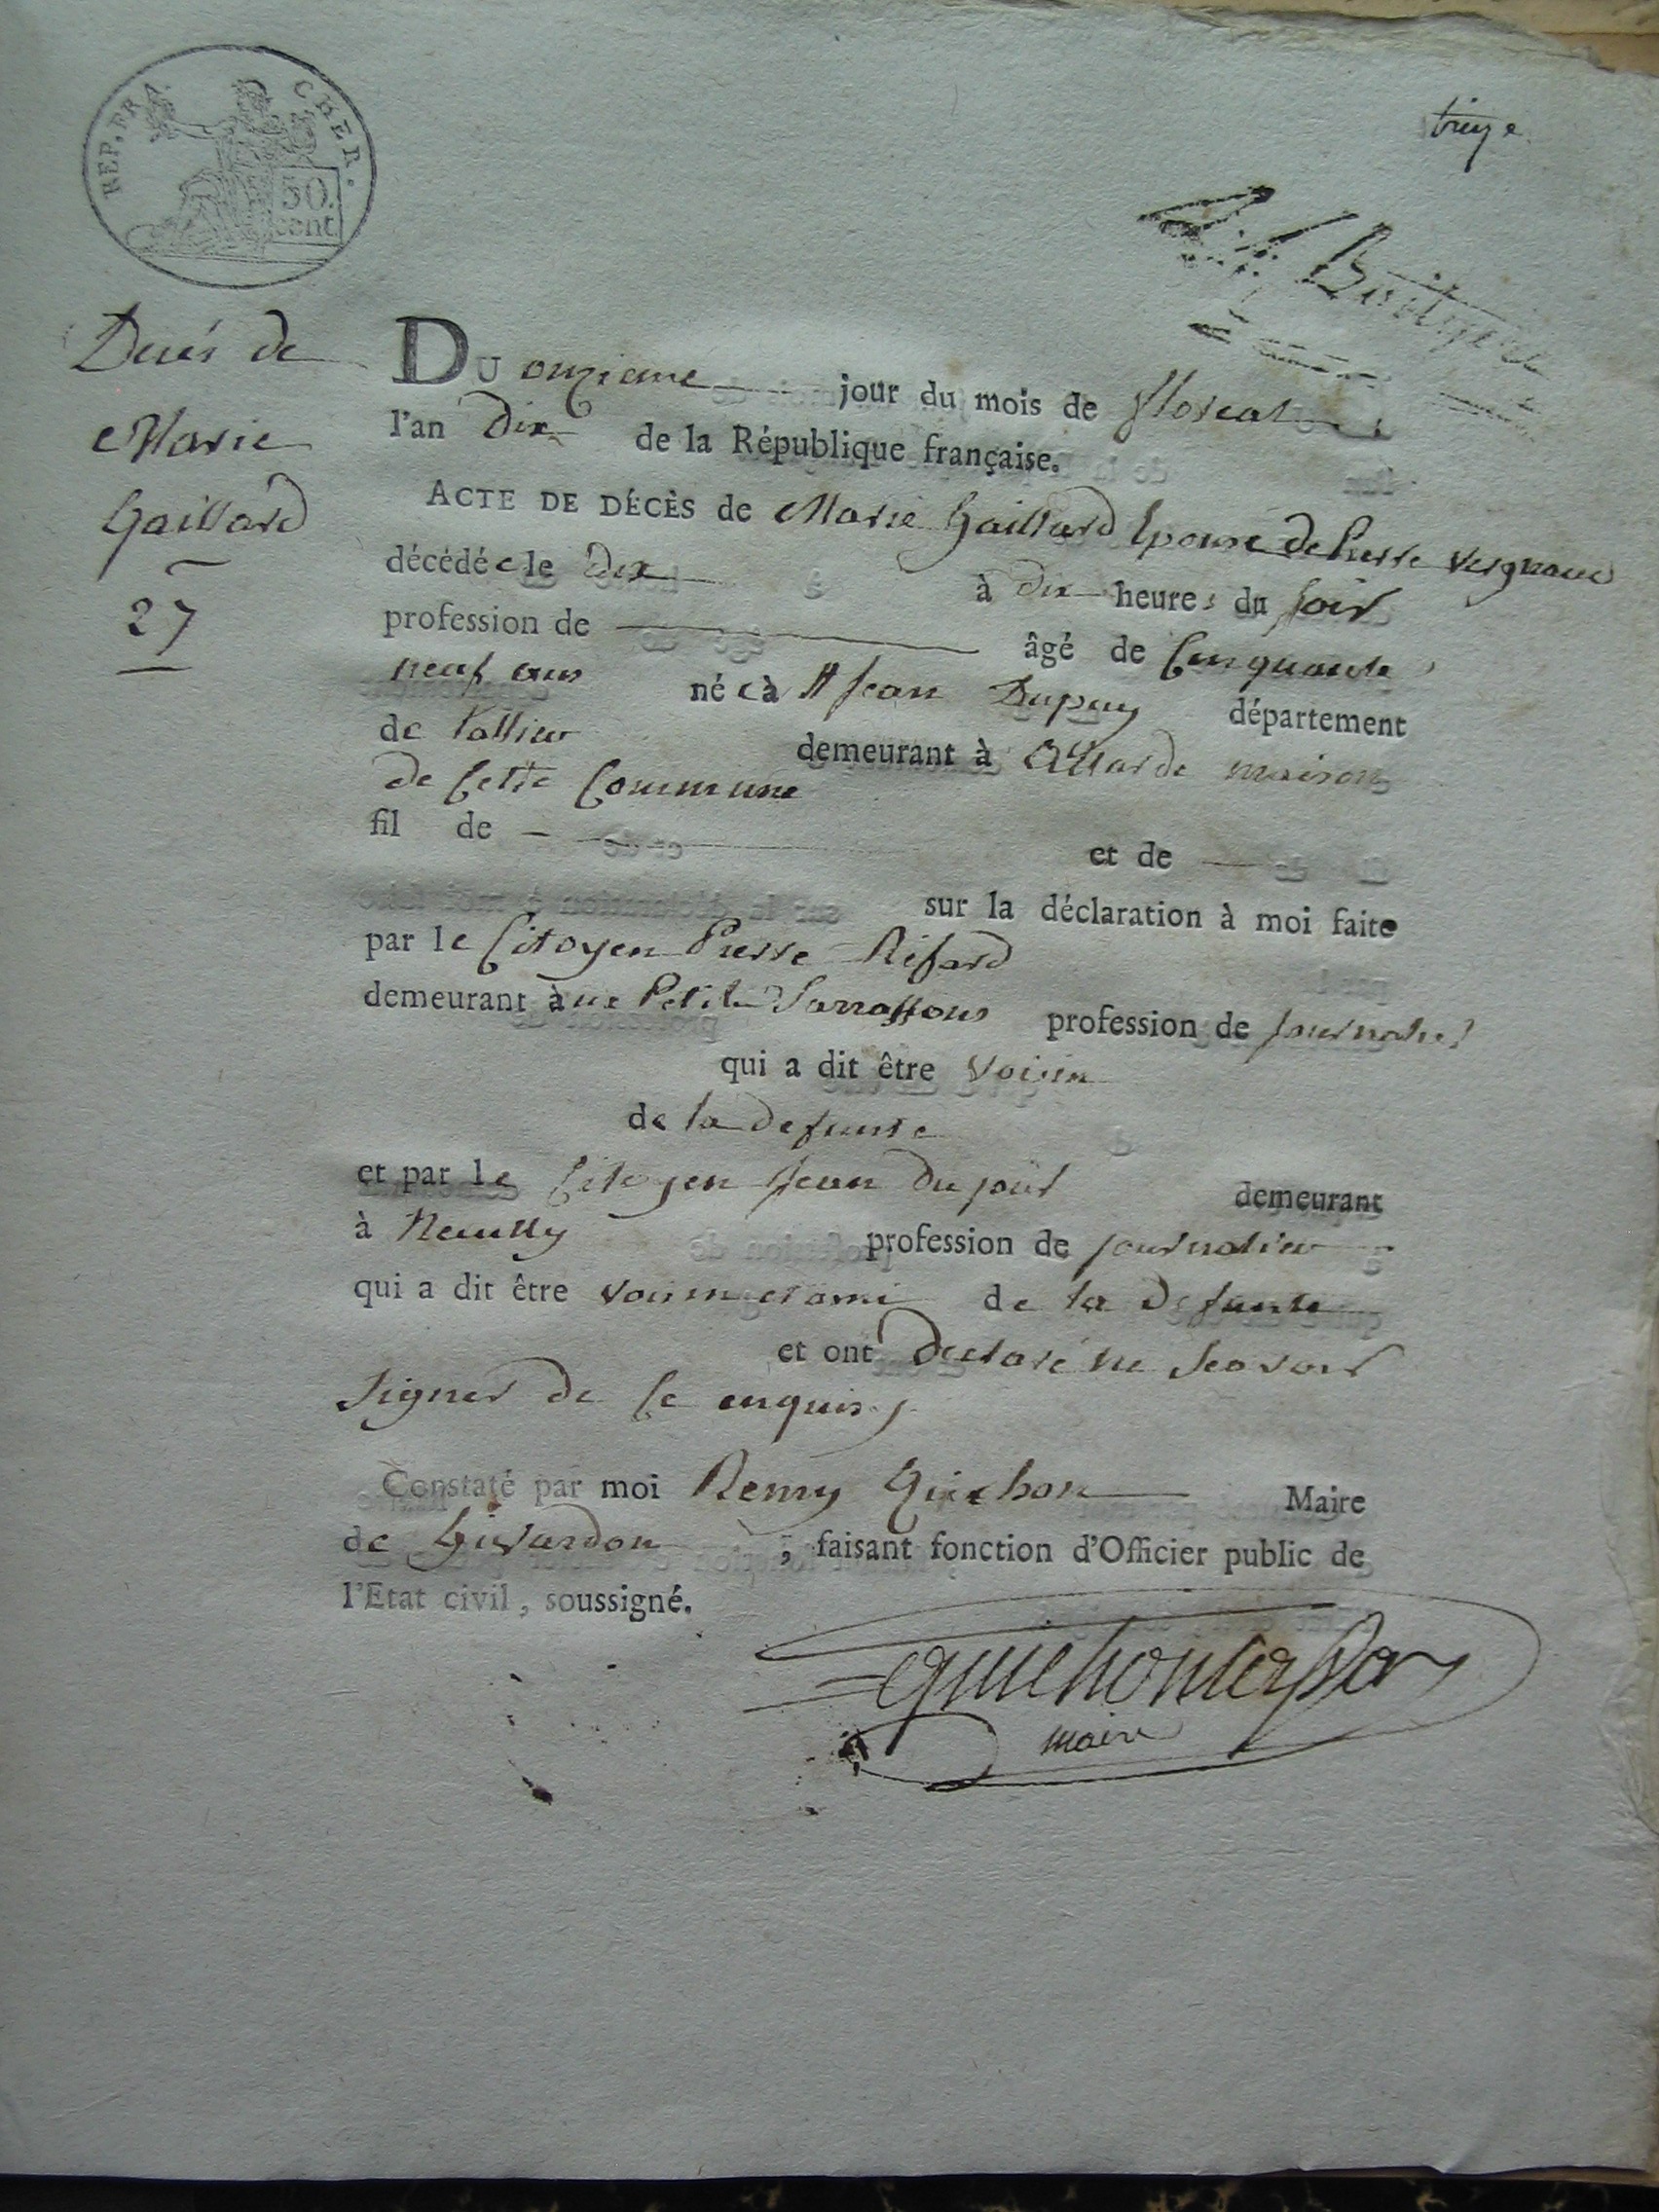 REP. FRA. CHER.
50.
cent
treize
Decés de
Marie
Gaillard
27
DU onzieme jour du mois de floreal
l'an Dix de la République française.
ACTE DE DÉCÈS de Marie Gaillard Epouse de Pierre Vergnaud
décédée le dix à dix heures du soir
profession de âgé de Cinquante
neuf ans née à St Jean Dupuy département
de l'allier demeurant à maison
de Cette Commune
fil de et de
sur la déclaration à moi faite
par le Citoyen Pierre Rifard
demeurant à ux Petits Sarrassons profession de Journalier
qui a dit être voisin
de la defunte
et par le Citoyen Jean Dujour demeurant
à Neuilly profession de journalier
qui a dit être voisin et ami de la defunte
et ont declaré ne scavoir
signer de Ce enquis
Constaté par moi Remy Guichon Maire
de Givardon, faisant fonction d'Officier public de
l'Etat civil, soussigné.
maire